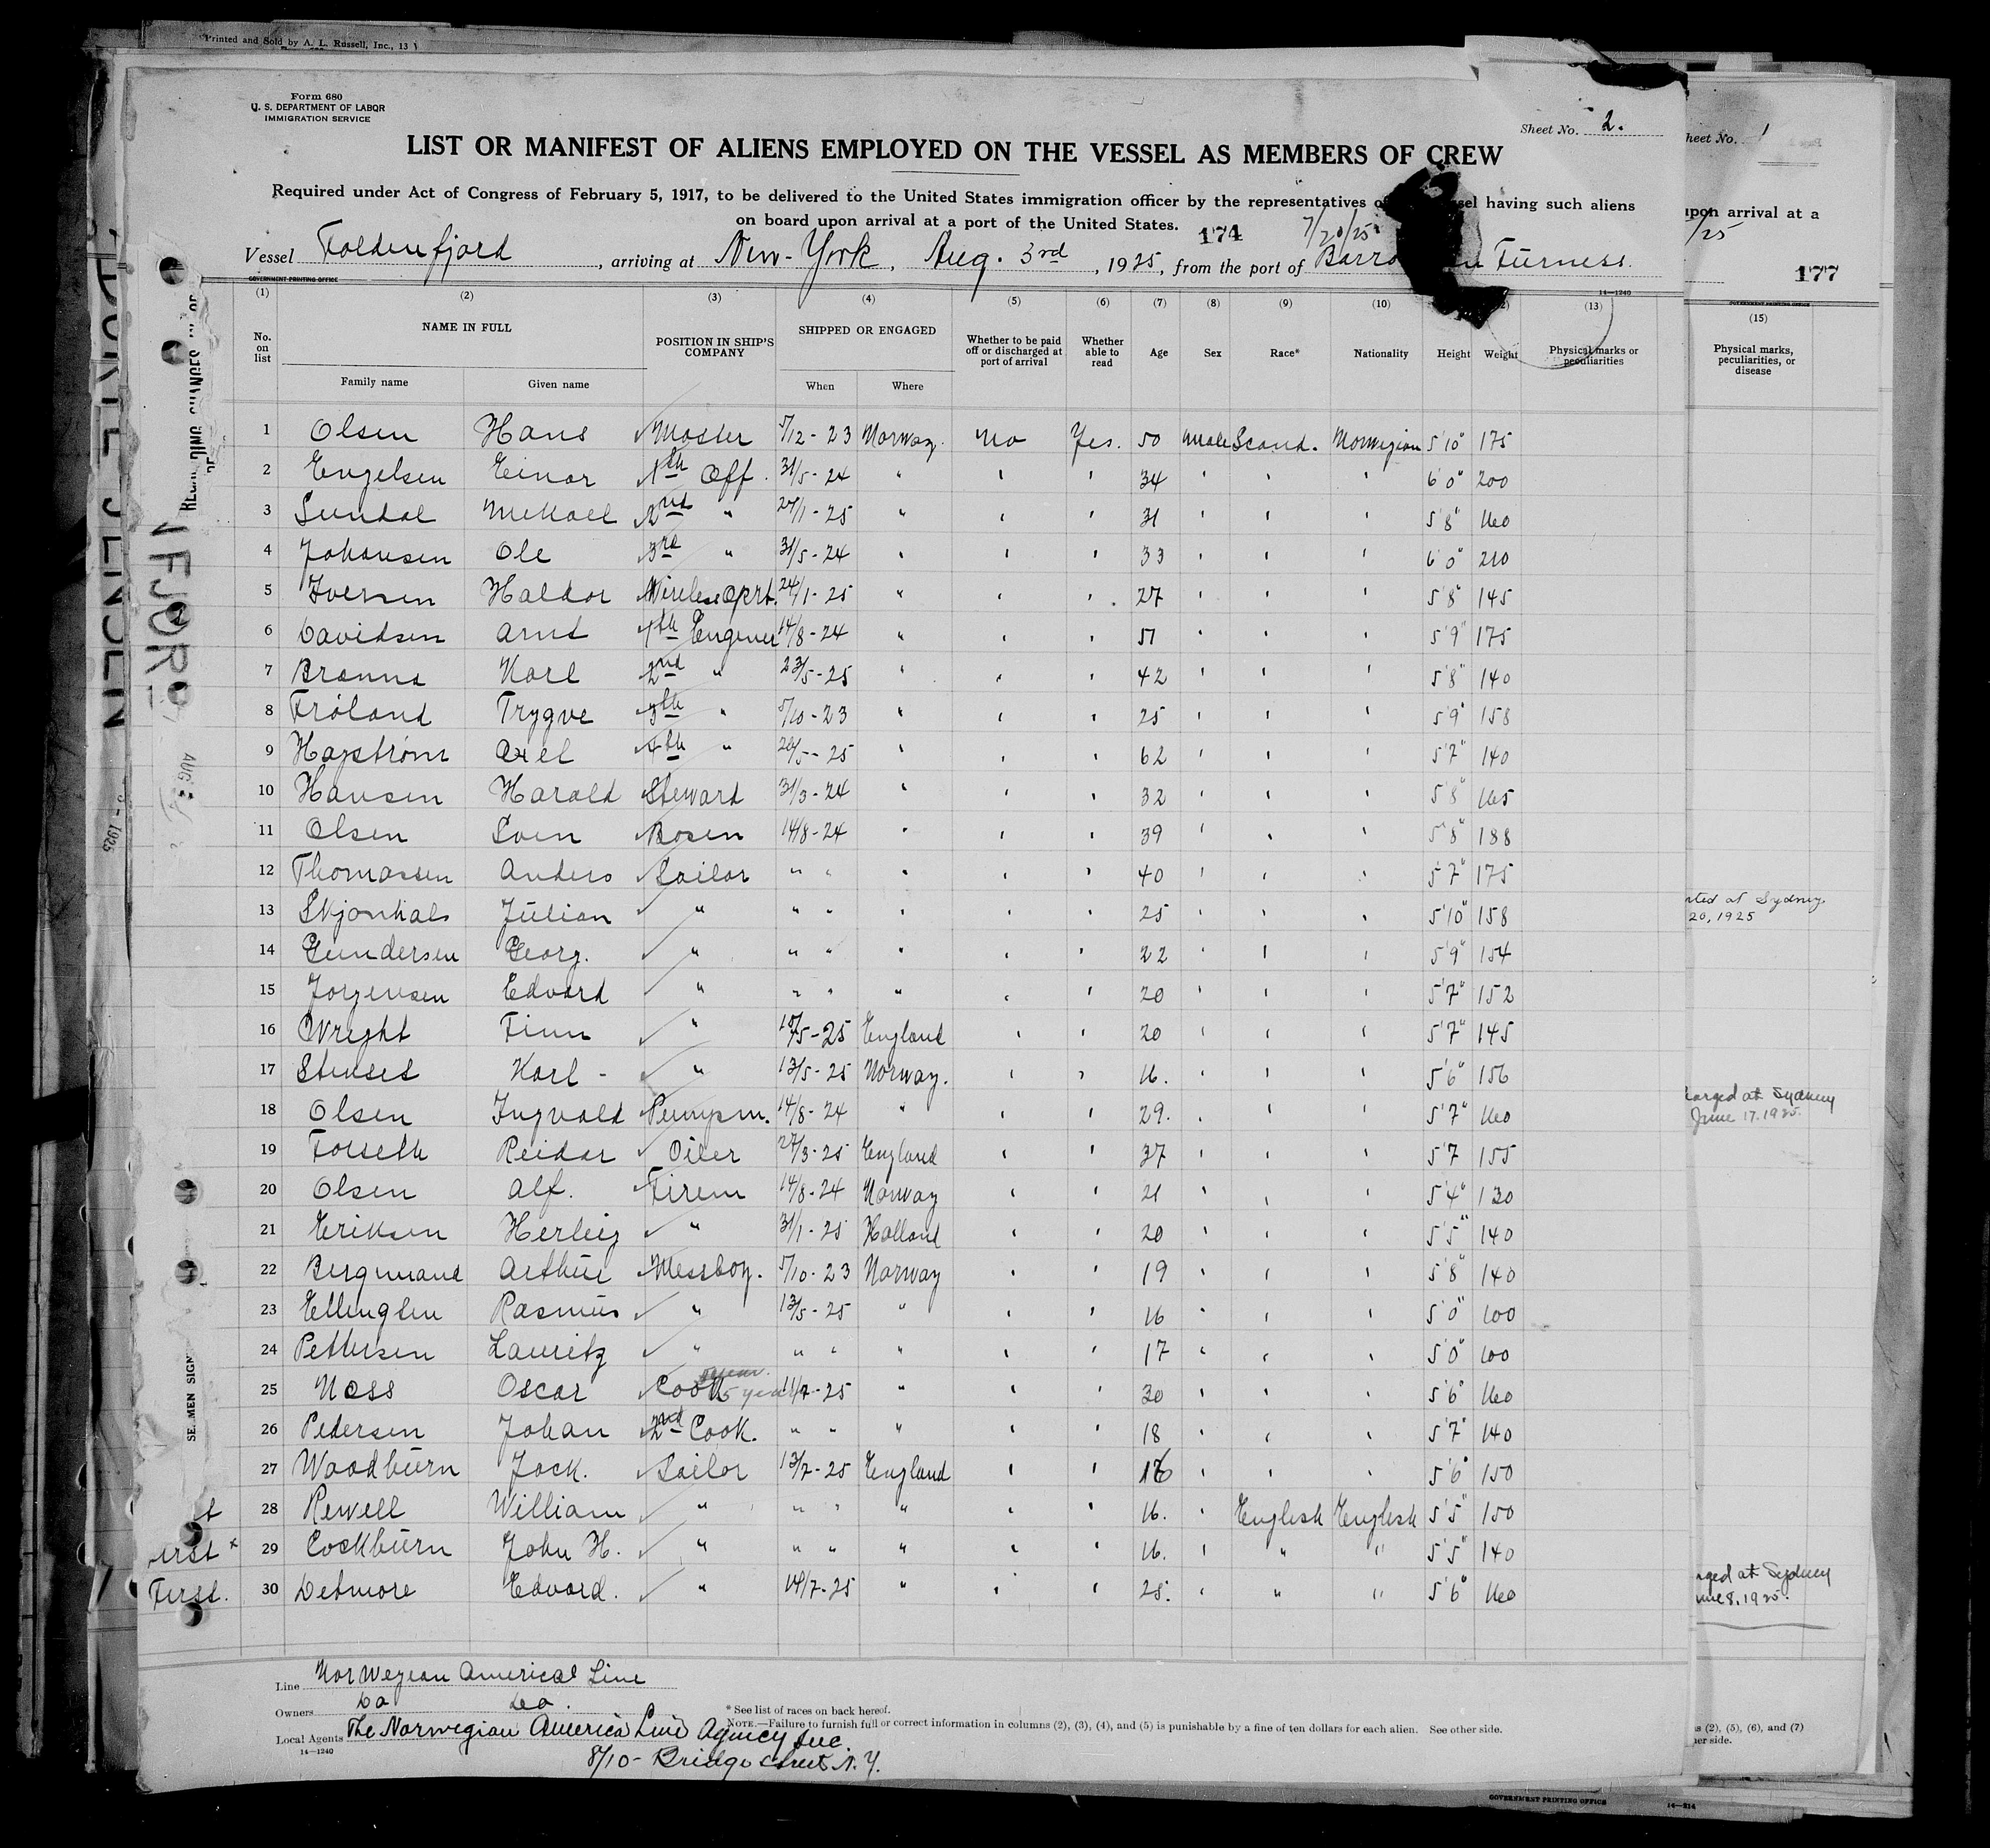 Printed and Sold by A. L. Russell, Inc., 13
Form 680
U. S. DEPARTMENT OF LABOR
IMMIGRATION SERVICE
Sheet No. 2.
LIST OR MANIFEST OF ALIENS EMPLOYED ON THE VESSEL AS MEMBERS OF CREW
Required under Act of Congress of February 5, 1917, to be delivered to the United States immigration officer by the representatives of sel having such aliens
on board upon arrival at a port of the United States. 174 7/20/25
Vessel Foldenfjord, arriving at New-York, Aug. 3rd, 1925, from the port of Barro Furness.
GOVERNMENT PRINTING OFFICE 14—1240
(1) (2) (3) (4) (5) (6) (7) (8) (9) (10) (13)
No. on list NAME IN FULL POSITION IN SHIP'S COMPANY SHIPPED OR ENGAGED Whether to be paid off or discharged at port of arrival Whether able to read Age Sex Race* Nationality Height Weight Physical marks or peculiarities
Family name Given name When Where
1 Olsen Hans Master 5/12-23 Norway. No Yes. 50 Male Scand. Norwegian 5'10" 175
2 Engelsen Einar 1th Off. 31/5-24 " ' ' 34 ' ' ' 6'0" 200
3 Sundal Mikael 2nd " 24/1-25 " ' ' 31 ' ' ' 5'8" 160
4 Johansen Ole 3rd " 31/5-24 " ' ' 33 ' ' ' 6'0" 210
5 Iversen Haldor Wireless Oprt. 24/1-25 " ' ' 27 ' ' ' 5'8" 145
6 Davidsen Arnt 1th Enginer 14/8-24 " ' ' 51 ' ' ' 5'9" 175
7 Karl 2nd " 23/5-25 " ' ' 42 ' ' ' 5'8" 140
8 Fröland Trygve 3th " 5/10-23 " ' ' 25 ' ' ' 5'9" 158
9 Hagström Axel 4th " 5-25 " ' ' 62 ' ' ' 5'7" 140
10 Hansen Harald Steward 31/3-24 " ' ' 32 ' ' ' 5'8" 165
11 Olsen Sven Bosen 14/8-24 " ' ' 39 ' ' ' 5'8" 188
12 Thomassen Anders Sailor " " " ' ' 40 ' ' ' 5'7" 175
13 Skjonhals Julian " " " " ' ' 25 ' ' ' 5'10" 158
14 Gundersen Georg. " " " " ' ' 22 ' ' ' 5'9" 154
15 Jorgensen Edvard " " " " ' ' 20 ' ' ' 5'7" 152
16 Wright Finn " 5-25 England ' ' 20 ' ' ' 5'7" 145
17 Stenset Karl - " 13/5-25 Norway. ' ' 16. ' ' ' 5'6" 156
18 Olsen Ingvald Pumpm. 14/8-24 " ' ' 29. ' ' ' 5'7" 160
19 Forseth Reidar Oiler 27/3-25 England ' ' 37 ' ' ' 5'7 155
20 Olsen Alf. Firem 14/8-24 Norway ' ' 21 ' ' ' 5'4" 130
21 Eriksen Herleig " 31/1-25 Holland ' ' 20 ' ' ' 5'5" 140
22 Arthur Messboy. 5/10-23 Norway ' ' 19 ' ' ' 5'8" 140
23 Rasmus " 13/5-25 " ' ' 16 ' ' ' 5'0" 100
24 Pettersen Lauritz " " " " ' ' 17 ' ' ' 5'0" 100
25 Ness Oscar Cook 11/7-25 " ' ' 30 ' ' ' 5'6" 160
26 Pedersen Johan 2nd Cook. " " " ' ' 18 ' ' ' 5'7" 140
27 Woodburn Jock. Sailor 13/7-25 England ' ' 16 ' ' ' 5'6" 150
28 Rewell William " " " " ' ' 16. ' English English 5'5" 150
29 Cockburn John H. " " " " ' ' 16. ' " " 5'5" 140
30 Detmore Edvard. " 14/7-25 " ' ' 25. ' " " 5'6" 160
First.
Line Norwegean Americal Line
Owners Do Do.
Local Agents The Norwegian America Line Agency Inc.
8/10- Bridge street N.Y.
14—1240
* See list of races on back hereof.
NOTE.—Failure to furnish full or correct information in columns (2), (3), (4), and (5) is punishable by a fine of ten dollars for each alien. See other side.
heet No. 1
upon arrival at a
/25
177
GOVERNMENT PRINTING OFFICE
(15)
Physical marks, peculiarities, or disease
at Sydney
20, 1925
arged at Sydney
June 17. 1925.
rged at Sydney
une 8. 1925.
s (2), (5), (6), and (7)
er side.
GOVERNMENT PRINTING OFFICE 14—214
NFJORD
AUG
SEAMEN SIGN
1925